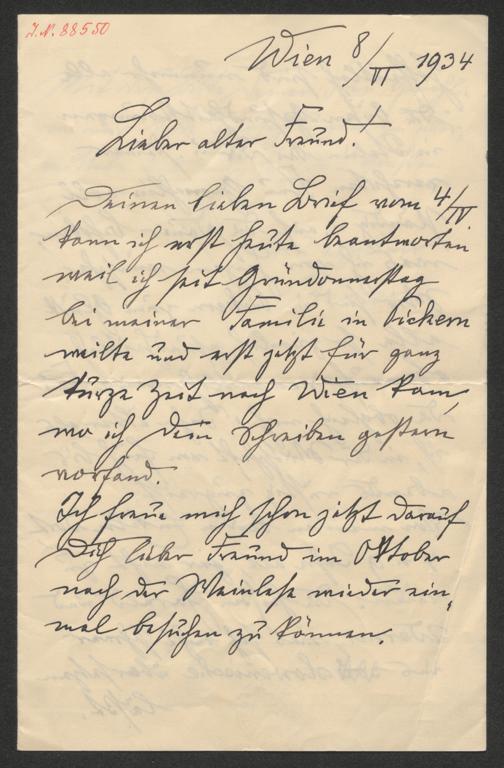 J.N. 88550
Wien 8/VI 1934
Lieber alter Freund!
Deinen lieben Brief vom 4/IV
kann ich erst heute beantworten
weil ich seit Gründonnerstag
bei meiner Familie in Pickern
weilte und erst jetzt für ganz
kurze Zeit nach Wien kam,
wo ich Dein Schreiben gestern
vorfand.
Ich freue mich schon jetzt darauf
Dich lieber Freund im Oktober
nach der Weinlese wieder ein-
mal besuchen zu können.